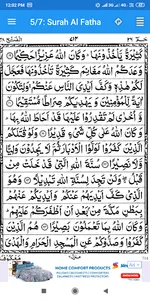 12:02 PM
5/7: Surah Al Fatha
الفتح ٤٨ ٥١٣ حٰمٓ ٢٦
كَثِيْرَةً يَّاْخُذُوْنَهَا وَكَانَ اللّٰهُ عَزِيْزًا حَكِيْمًا
وَعَدَكُمُ اللّٰهُ مَغَانِمَ كَثِيْرَةً تَاْخُذُوْنَهَا فَعَجَّلَ
لَكُمْ هٰذِهٖ وَكَفَّ اَيْدِيَ النَّاسِ عَنْكُمْ وَلِتَكُوْنَ
اٰيَةً لِّلْمُؤْمِنِيْنَ وَيَهْدِيَكُمْ صِرَاطًا مُّسْتَقِيْمًا
وَّاُخْرٰى لَمْ تَقْدِرُوْا عَلَيْهَا قَدْ اَحَاطَ اللّٰهُ بِهَا
وَكَانَ اللّٰهُ عَلٰى كُلِّ شَيْءٍ قَدِيْرًا وَلَوْ قٰتَلَكُمُ
الَّذِيْنَ كَفَرُوْا لَوَلَّوُا الْاَدْبَارَ ثُمَّ لَا يَجِدُوْنَ وَلِيًّا
وَّلَا نَصِيْرًا سُنَّةَ اللّٰهِ الَّتِيْ قَدْ خَلَتْ مِنْ
قَبْلُ وَلَنْ تَجِدَ لِسُنَّةِ اللّٰهِ تَبْدِيْلًا وَهُوَ
الَّذِيْ كَفَّ اَيْدِيَهُمْ عَنْكُمْ وَاَيْدِيَكُمْ عَنْهُمْ
بِبَطْنِ مَكَّةَ مِنْۢ بَعْدِ اَنْ اَظْفَرَكُمْ عَلَيْهِمْ
وَكَانَ اللّٰهُ بِمَا تَعْمَلُوْنَ بَصِيْرًا هُمُ الَّذِيْنَ
كَفَرُوْا وَصَدُّوْكُمْ عَنِ الْمَسْجِدِ الْحَرَامِ وَالْهَدْيَ
HOME COMFORT PRODUCTS